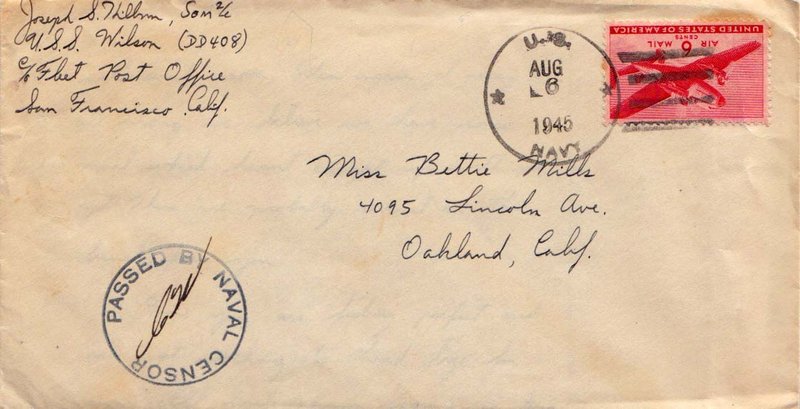 Joseph S. Thilbm, Som 2/c
U.S.S. Wilson (DD408)
c/o Fleet Post Office
San Francisco, Calif.
U.S.
AUG
6
1945
NAVY
UNITED STATES OF AMERICA
AIR MAIL
6
CENTS
Miss Bettie Mills
4095 Lincoln Ave.
Oakland, Calif.
PASSED BY NAVAL CENSOR